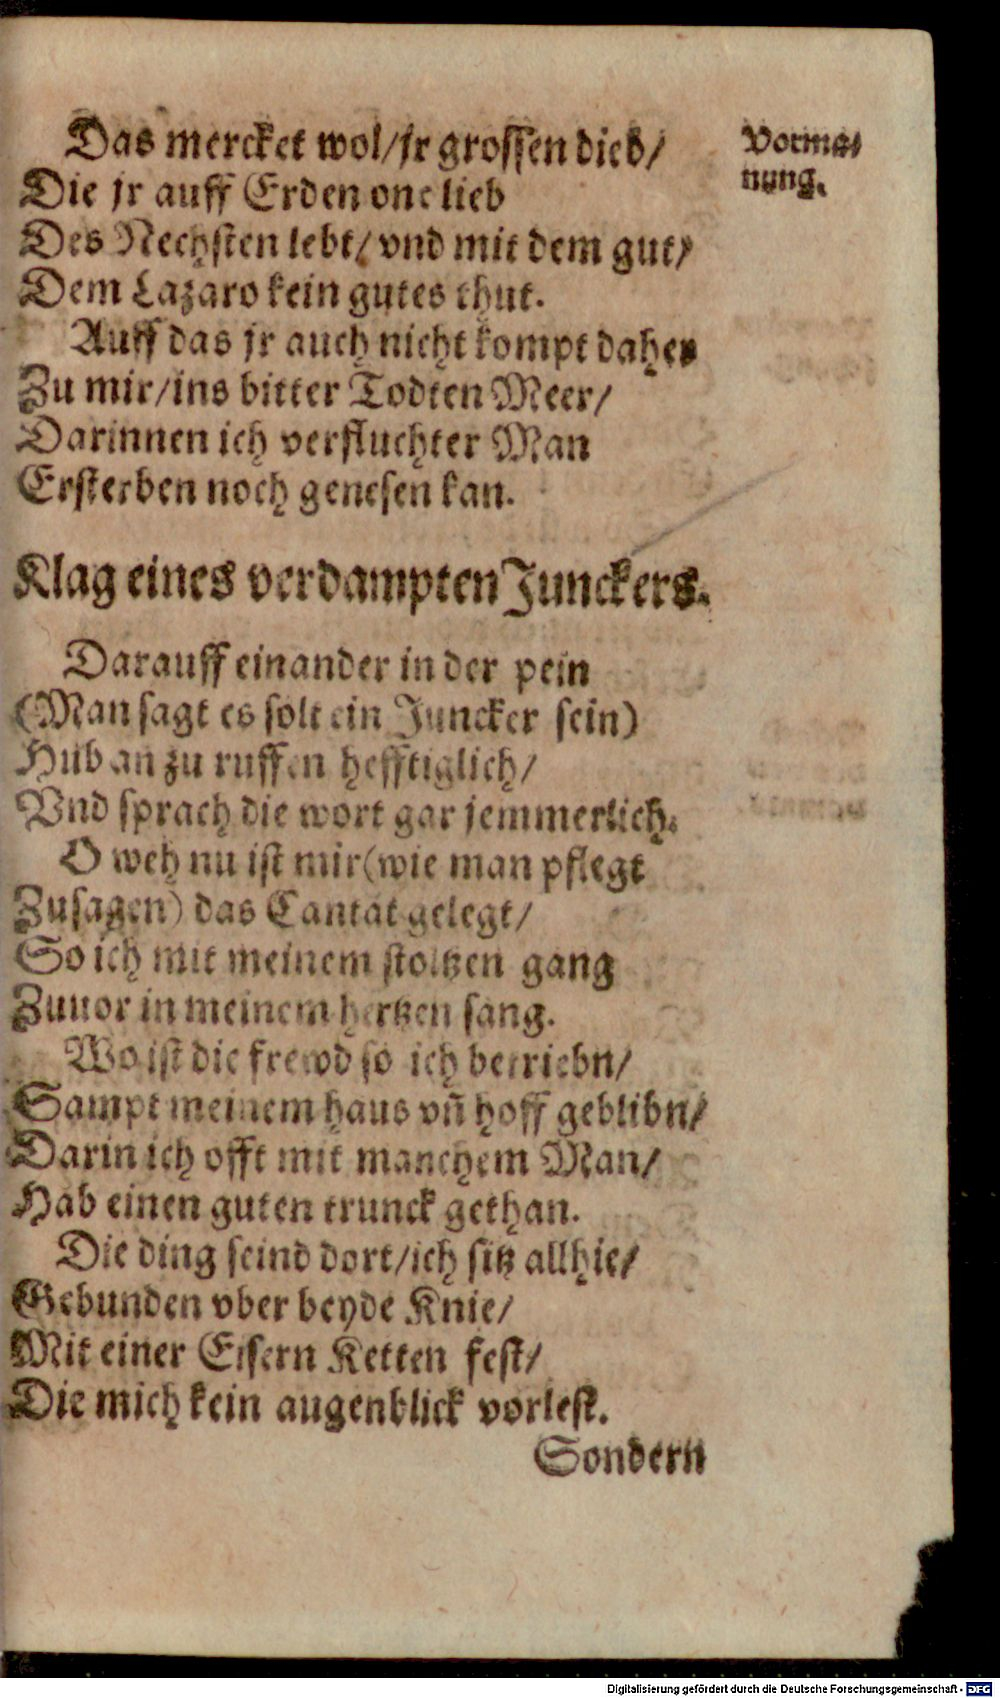 Das mercket wol/jr grossen dieb/
Vorma-
nung.
Die jr auff Erden one lieb
Des Nechsten lebt/ vnd mit dem gut/
Dem Lazaro kein gutes thut.
Auff das jr auch nicht kompt daher
Zu mir/ins bitter Todten Meer/
Darinnen ich verfluchter Man
Ersterben noch genesen kan.
Klag eines verdampten Junckers.
Darauff einander in der pein
(Man sagt es solt ein Juncker sein)
Hub an zu ruffen hefftiglich/
Vnd sprach die wort gar jemmerlich.
O weh nu ist mir(wie man pflegt
Zusagen) das Cantat gelegt/
So ich mit meinem stoltzen gang
Zuuor in meinem hertzen sang.
Wo ist die frewd so ich betriebn/
Sampt meinem haus vñ hoff geblibn/
Darin ich offt mit manchem Man/
Hab einen guten trunck gethan.
Die ding seind dort/ich sitz allhie/
Gebunden vber beyde Knie/
Mit einer Eisern Ketten fest/
Die mich kein augenblick vorlest.
Sondern
Digitalisierung gefördert durch die Deutsche Forschungsgemeinschaft - DFG